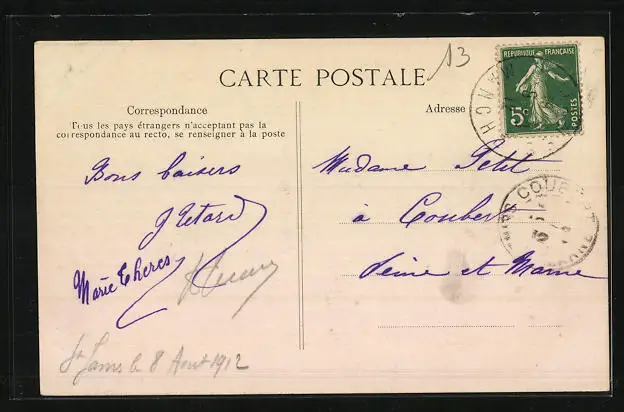 13
CARTE POSTALE
RÉPUBLIQUE FRANÇAISE
5c
POSTES
MANCHE
Correspondance
Tous les pays étrangers n'acceptent pas la
correspondance au recto, se renseigner à la poste
Adresse
Bons baisers
Marie Theres
Madame Petit
à Coubert
Seine et Marne
COUBERT
St James le 8 Aout 1912